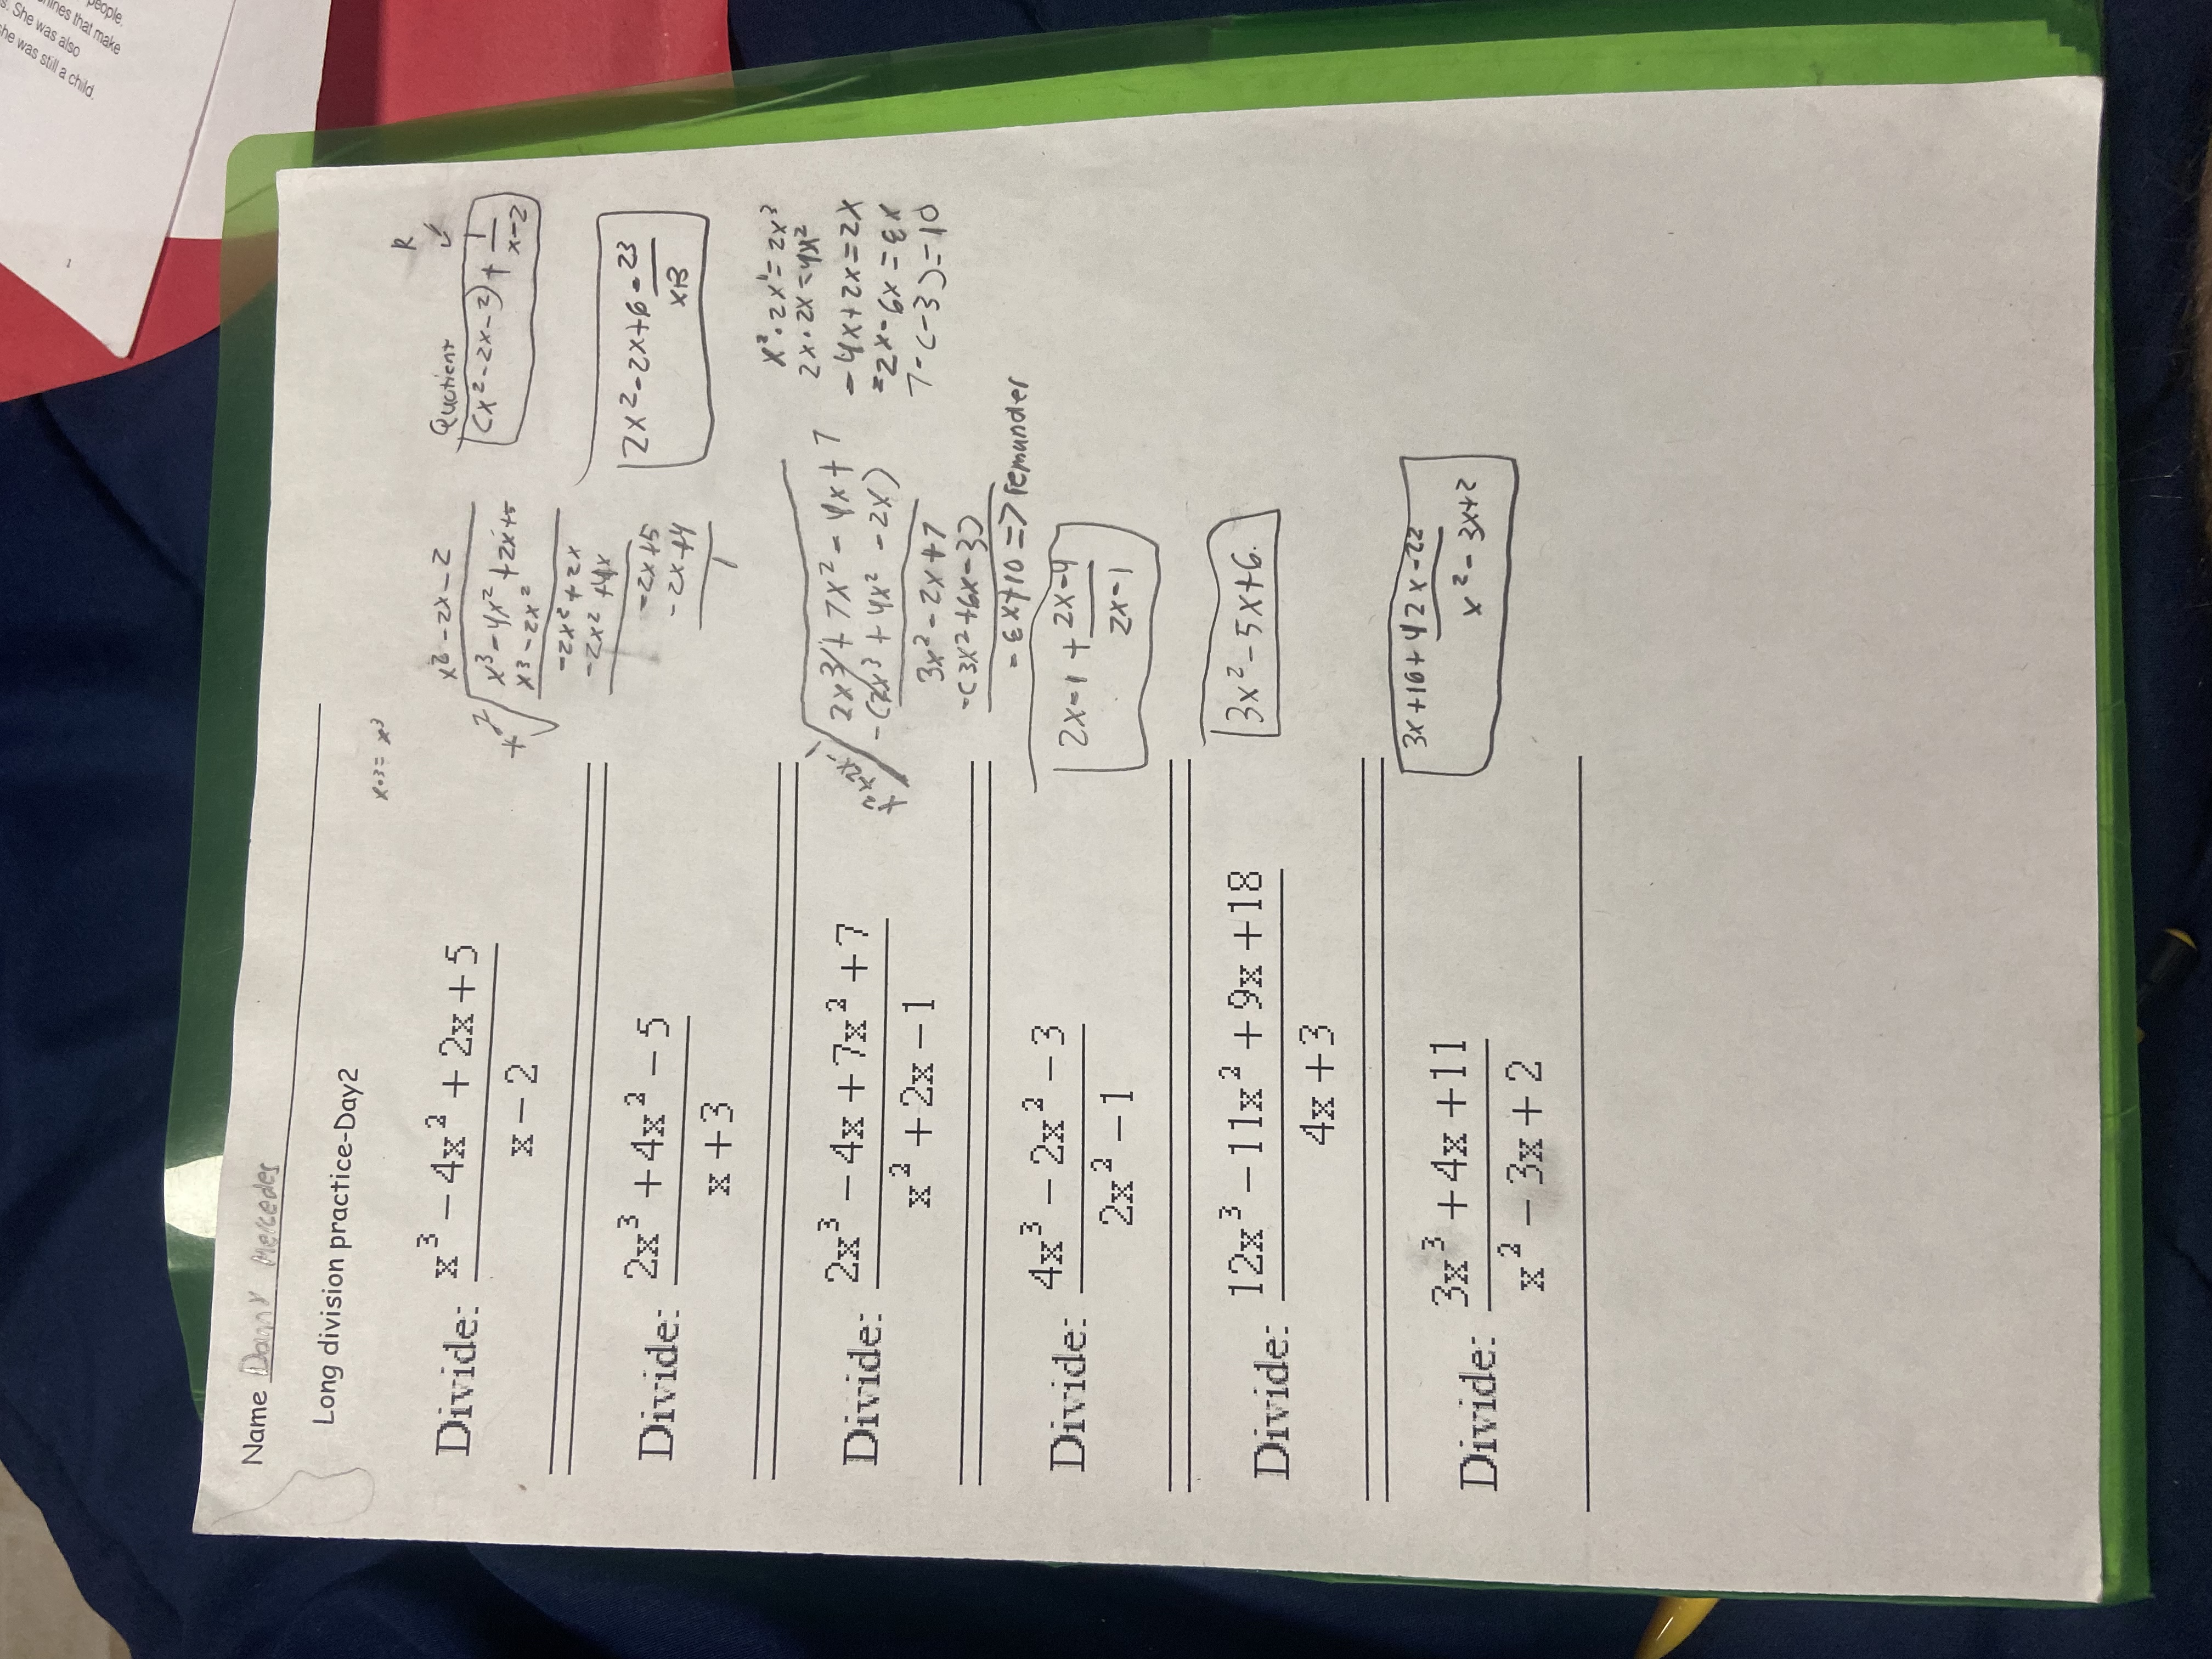 people.
hines that make
s. She was also
she was still a child.
1
Name Danny Mercedes
Long division practice-Day2
x·3= x³
Divide: x³ − 4x² + 2x + 5
x − 2
x² - 2x - 2
x³ - 4x² + 2x + 5
x³ - 2x²
-2x² + 2x
-2x² + 4x
-2x + 5
-2x + 4
1
Quotient
R
(x² - 2x - 2) + 1
x - 2
Divide: 2x³ + 4x² − 5
x + 3
2x² - 2x + 6 - 23
x + 3
Divide: 2x³ − 4x + 7x² + 7
x² + 2x − 1
2x³ + 7x² - 4x + 7
-(2x³ + 4x² - 2x)
3x² - 2x + 7
-(3x² + 6x - 3)
- 8x + 10 => remainder
x² · 2x = 2x³
2x · 2x = 4x²
- 4x + 2x = 2x
-2x - 6x = 8x
7 - (-3) = 10
Divide: 4x³ − 2x² − 3
2x² − 1
2x - 1 + 2x - 4
2x - 1
Divide: 12x³ − 11x² + 9x + 18
4x + 3
3x² - 5x + 6.
Divide: 3x³ + 4x + 11
x² − 3x + 2
3x + 16 + 42x - 22
x² - 3x + 2